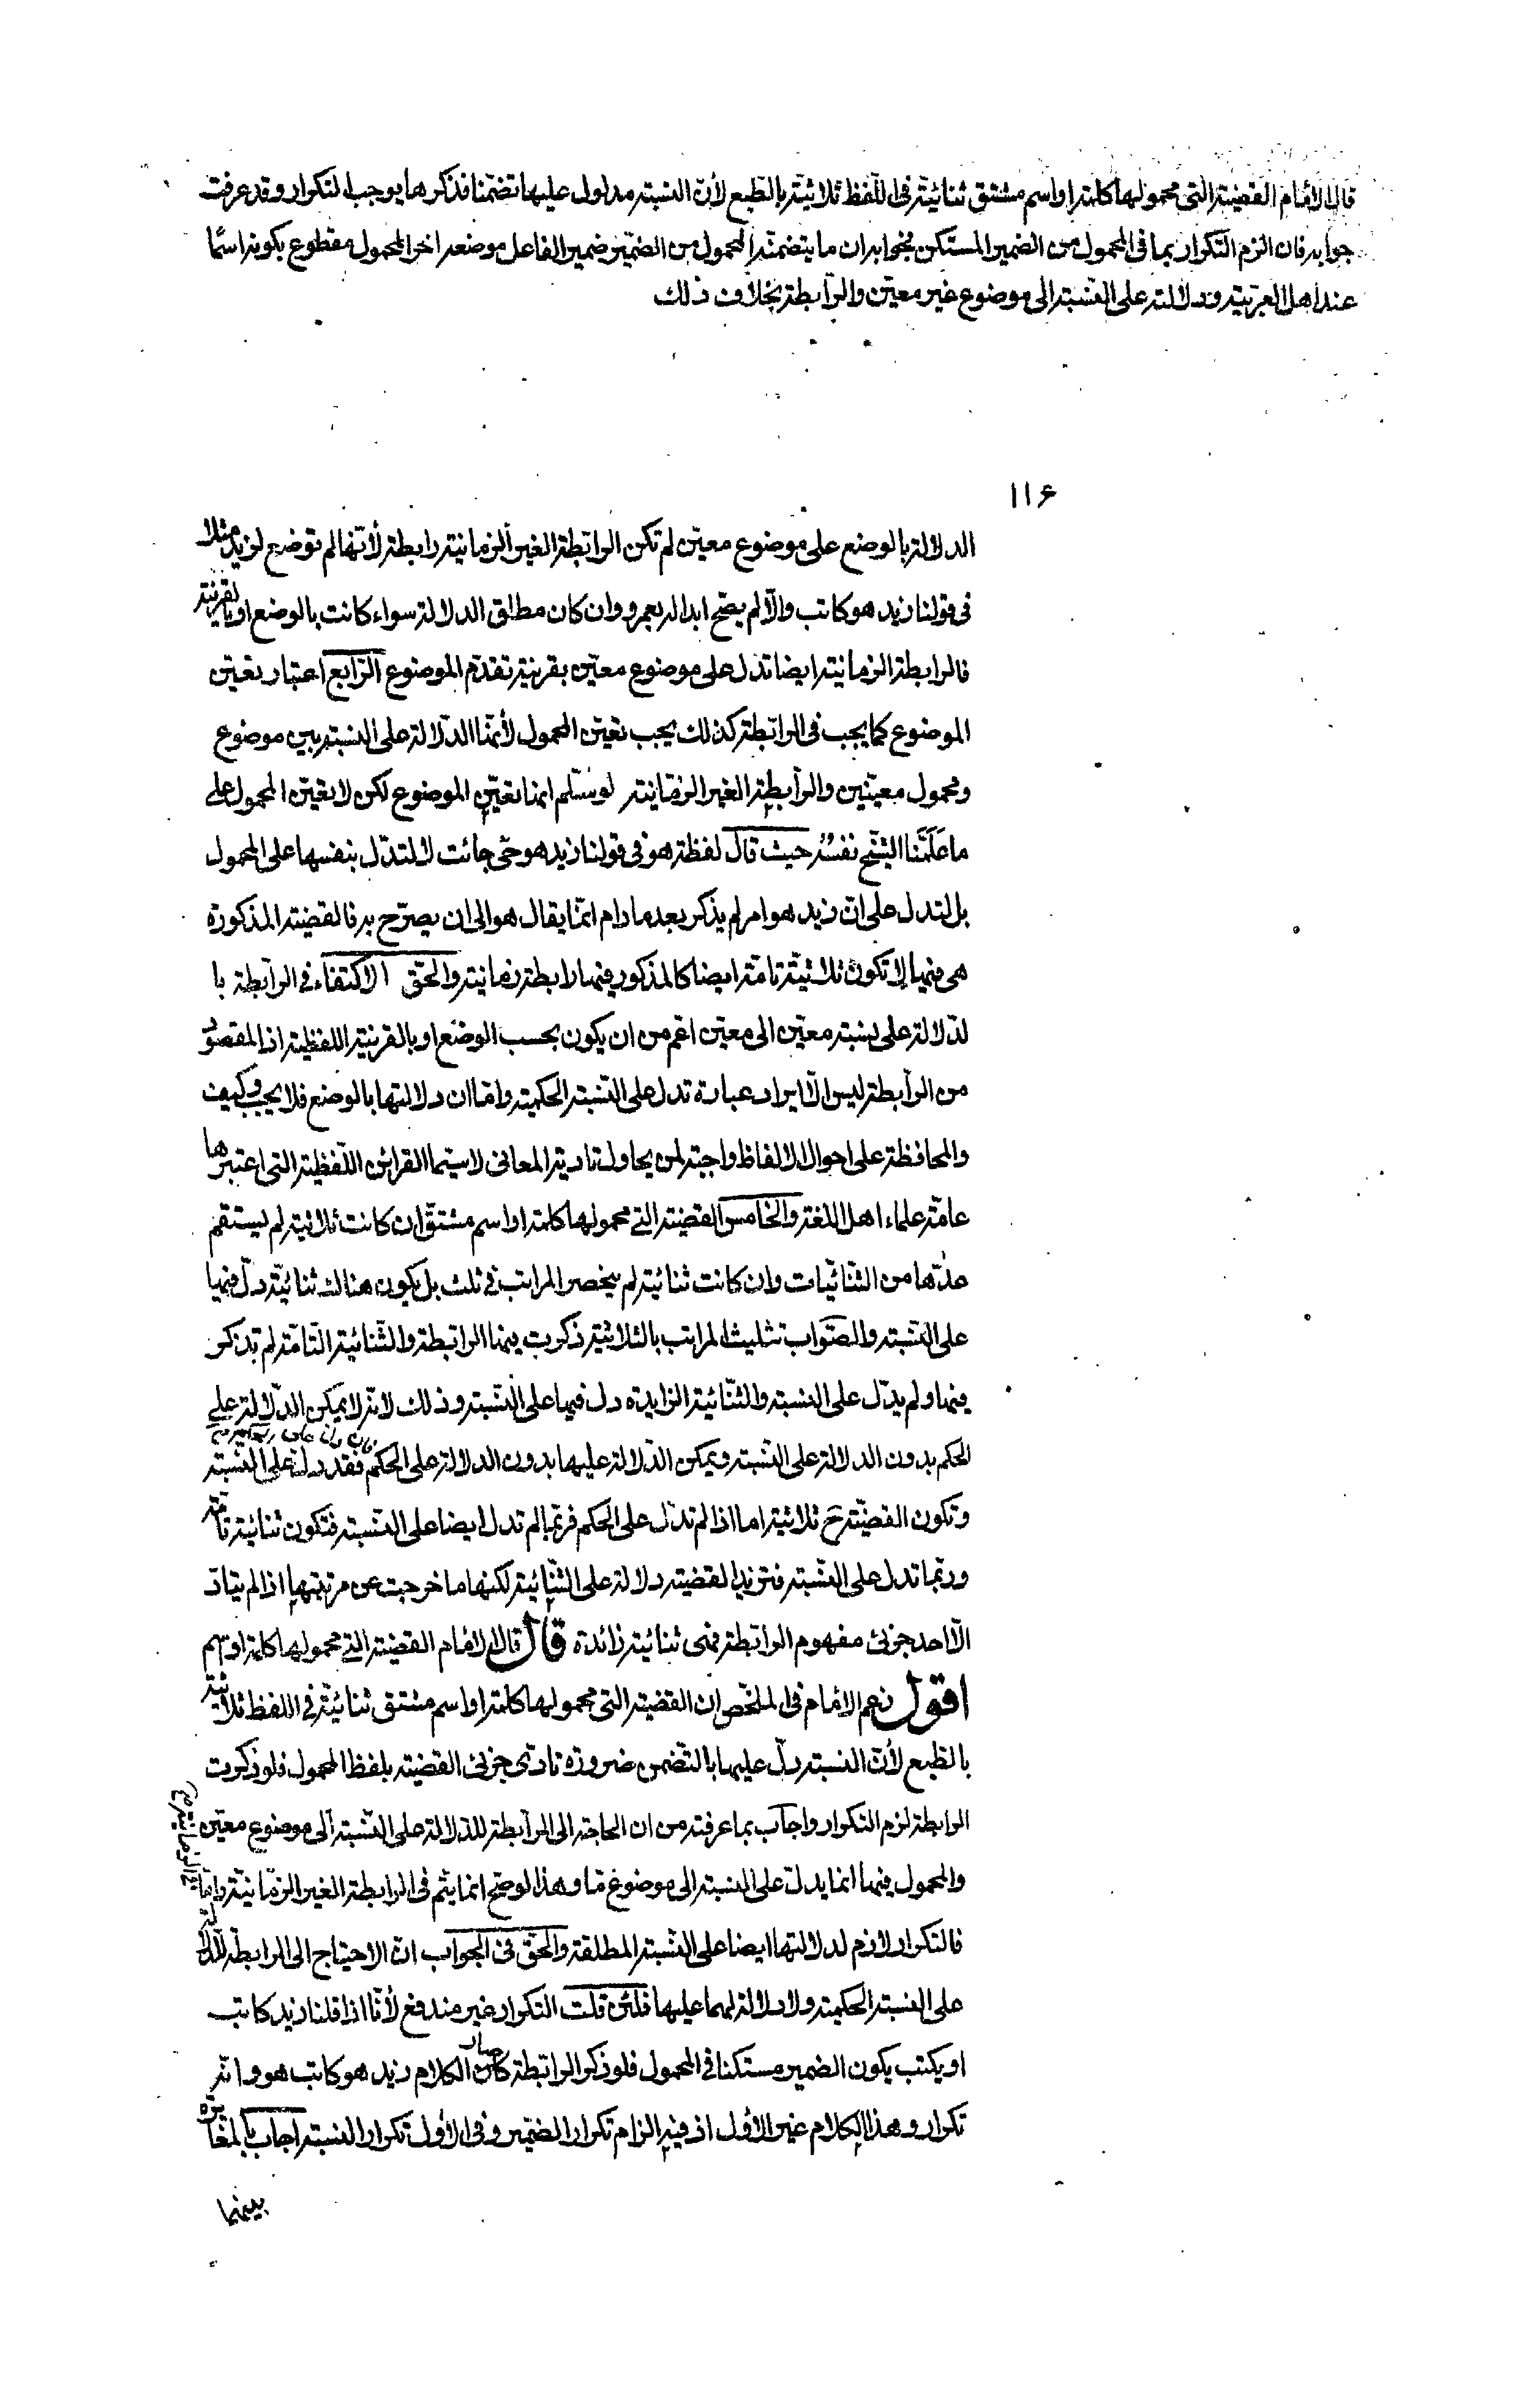 قال الامام القضية التي محمولها كلمة او اسم مشتق ثنائية في اللفظ ثلاثية بالطبع لأن النسبة مدلول عليها تضمنا فذكرها يوجب التكرار وقد عرفت
جوابه فان الزم التكرار بما في المحمول من الضمير المستكن فجوابه ان ما يتضمنه المحمول من الضمير ضمير الفاعل موضعه اخر المحمول مقطوع بكونه اسمًا
عند اهل العربية ودلالته على النسبة الى موضوع غير معين والرابطة بخلاف ذلك
۱۱۶
الدلالة بالوضع على موضوع معين لم تكن الرابطة الغير الزمانية رابطة لأنها لم توضع لزيد مثلا
في قولنا زيد هو كاتب والا لم يصح ابداله بعمرو وان كان مطلق الدلالة سواء كانت بالوضع او بالقرينة
فالرابطة الزمانية ايضا تدل على موضوع معين بقرينة تقدم الموضوع الرابع اعتبار تعين
الموضوع كما يجب في الرابطة كذلك يجب تعين المحمول لأنها الدلالة على النسبة بين موضوع
ومحمول معينين والرابطة الغير الزمانية لو سلم انها تعين الموضوع لكن لا تعين المحمول على
ما علمنا الشيخ نفسه حيث قال لفظة هو في قولنا زيد هو حي جائت لا لتدل بنفسها على المحمول
بل لتدل على ان زيد هو امر لم يذكر بعد ما دام انما يقال هو الى ان يصرح به فالقضية المذكورة
هي فيها لا تكون ثلاثية تامة ايضا كالمذكور فيها رابطة زمانية والحق الاكتفاء في الرابطة با
لدلالة على نسبة معين الى معين اعم من ان يكون بحسب الوضع او بالقرينة اللفظية اذ المقصود
من الرابطة ليس الا ايراد عبارة تدل على النسبة الحكمية واما ان دلالتها بالوضع فلا يجب وكيف
والمحافظة على احوال الالفاظ واجبة لمن يحاول تادية المعاني لا سيما القرائن اللفظية التي اعتبرها
عامة علماء اهل اللغة والخامس القضية التي محمولها كلمة او اسم مشتق ان كانت ثلاثية لم يستقم
عدها من الثنائيات وان كانت ثنائية لم ينحصر المراتب في ثلث بل يكون هناك ثنائية دل فيها
على النسبة والصواب تثليث المراتب بالثلاثية ذكرت فيها الرابطة والثنائية التامة لم تذكر
فيها ولم يدل على النسبة والثنائية الزايدة دل فيها على النسبة وذلك لانه لا يمكن الدلالة على
الحكم بدون الدلالة على النسبة ويمكن الدلالة عليها بدون الدلالة على الحكم فقد دل على النسبة
وتكون القضية ح ثلاثية اما اذا لم تدل على الحكم فربما لم تدل ايضا على النسبة فتكون ثنائية تامة
وربما تدل على النسبة فتزيد القضية دلالة على الثنائية لكنها ما خرجت عن مرتبتها اذ لم يتاد
الا احد جزئي مفهوم الرابطة فهى ثنائية زائدة قال قال الامام القضية التي محمولها كلمة او اسم
اقول زعم الامام في الملخص ان القضية التي محمولها كلمة او اسم مشتق ثنائية في اللفظ ثلاثية
بالطبع لأن النسبة دل عليها بالتضمن ضرورة تادى جزئي القضية بلفظ المحمول فلو ذكرت
الرابطة لزم التكرار واجاب بما عرفته من ان الحاجة الى الرابطة للدلالة على النسبة الى موضوع معين
والمحمول فيها انما يدل على النسبة الى موضوع ما وهذا لو صح انما يتم في الرابطة الغير الزمانية واما
في الزمانية صح
فالتكرار لازم لدلالتها ايضا على النسبة المطلقة والحق في الجواب ان الاحتياج الى الرابطة للدلالة
على النسبة الحكمية ولا دلالة لهما عليها فلئن قلت التكرار غير مندفع لأنا اذا قلنا زيد كاتب
او يكتب يكون الضمير مستكنا في المحمول فلو ذكر الرابطة كان صار الكلام زيد هو كاتب هو وانه
تكرار وهذا الكلام غير الاول اذ فيه الزام تكرار الضمير وفي الاول تكرار النسبة اجاب بالمغايرة
بينهما